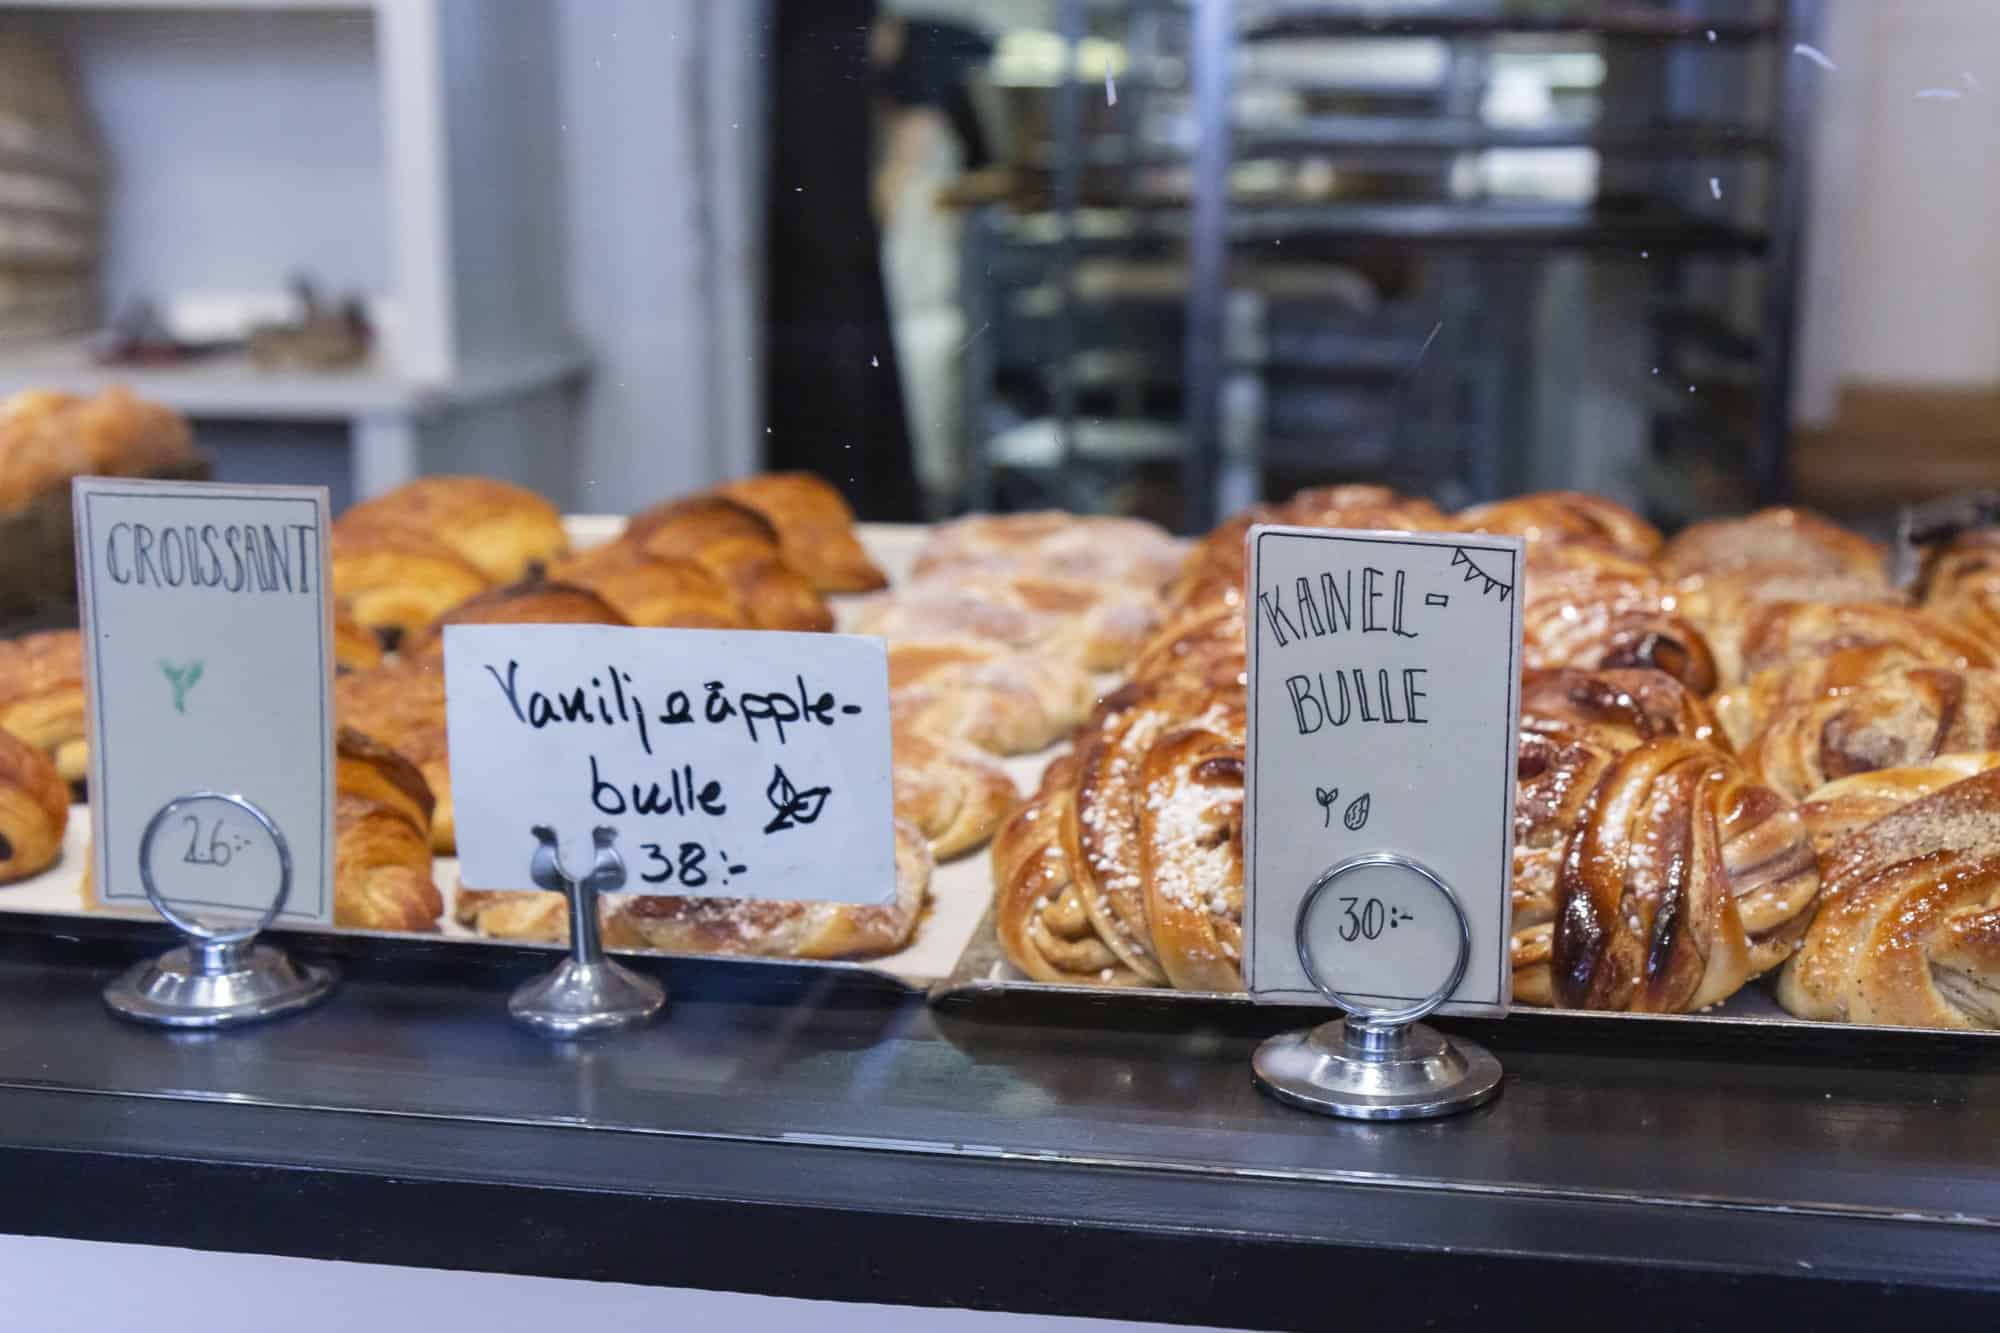 CROISSANT
26:-
Vanilj & äpple-
bulle
38:-
KANEL-
BULLE
30:-